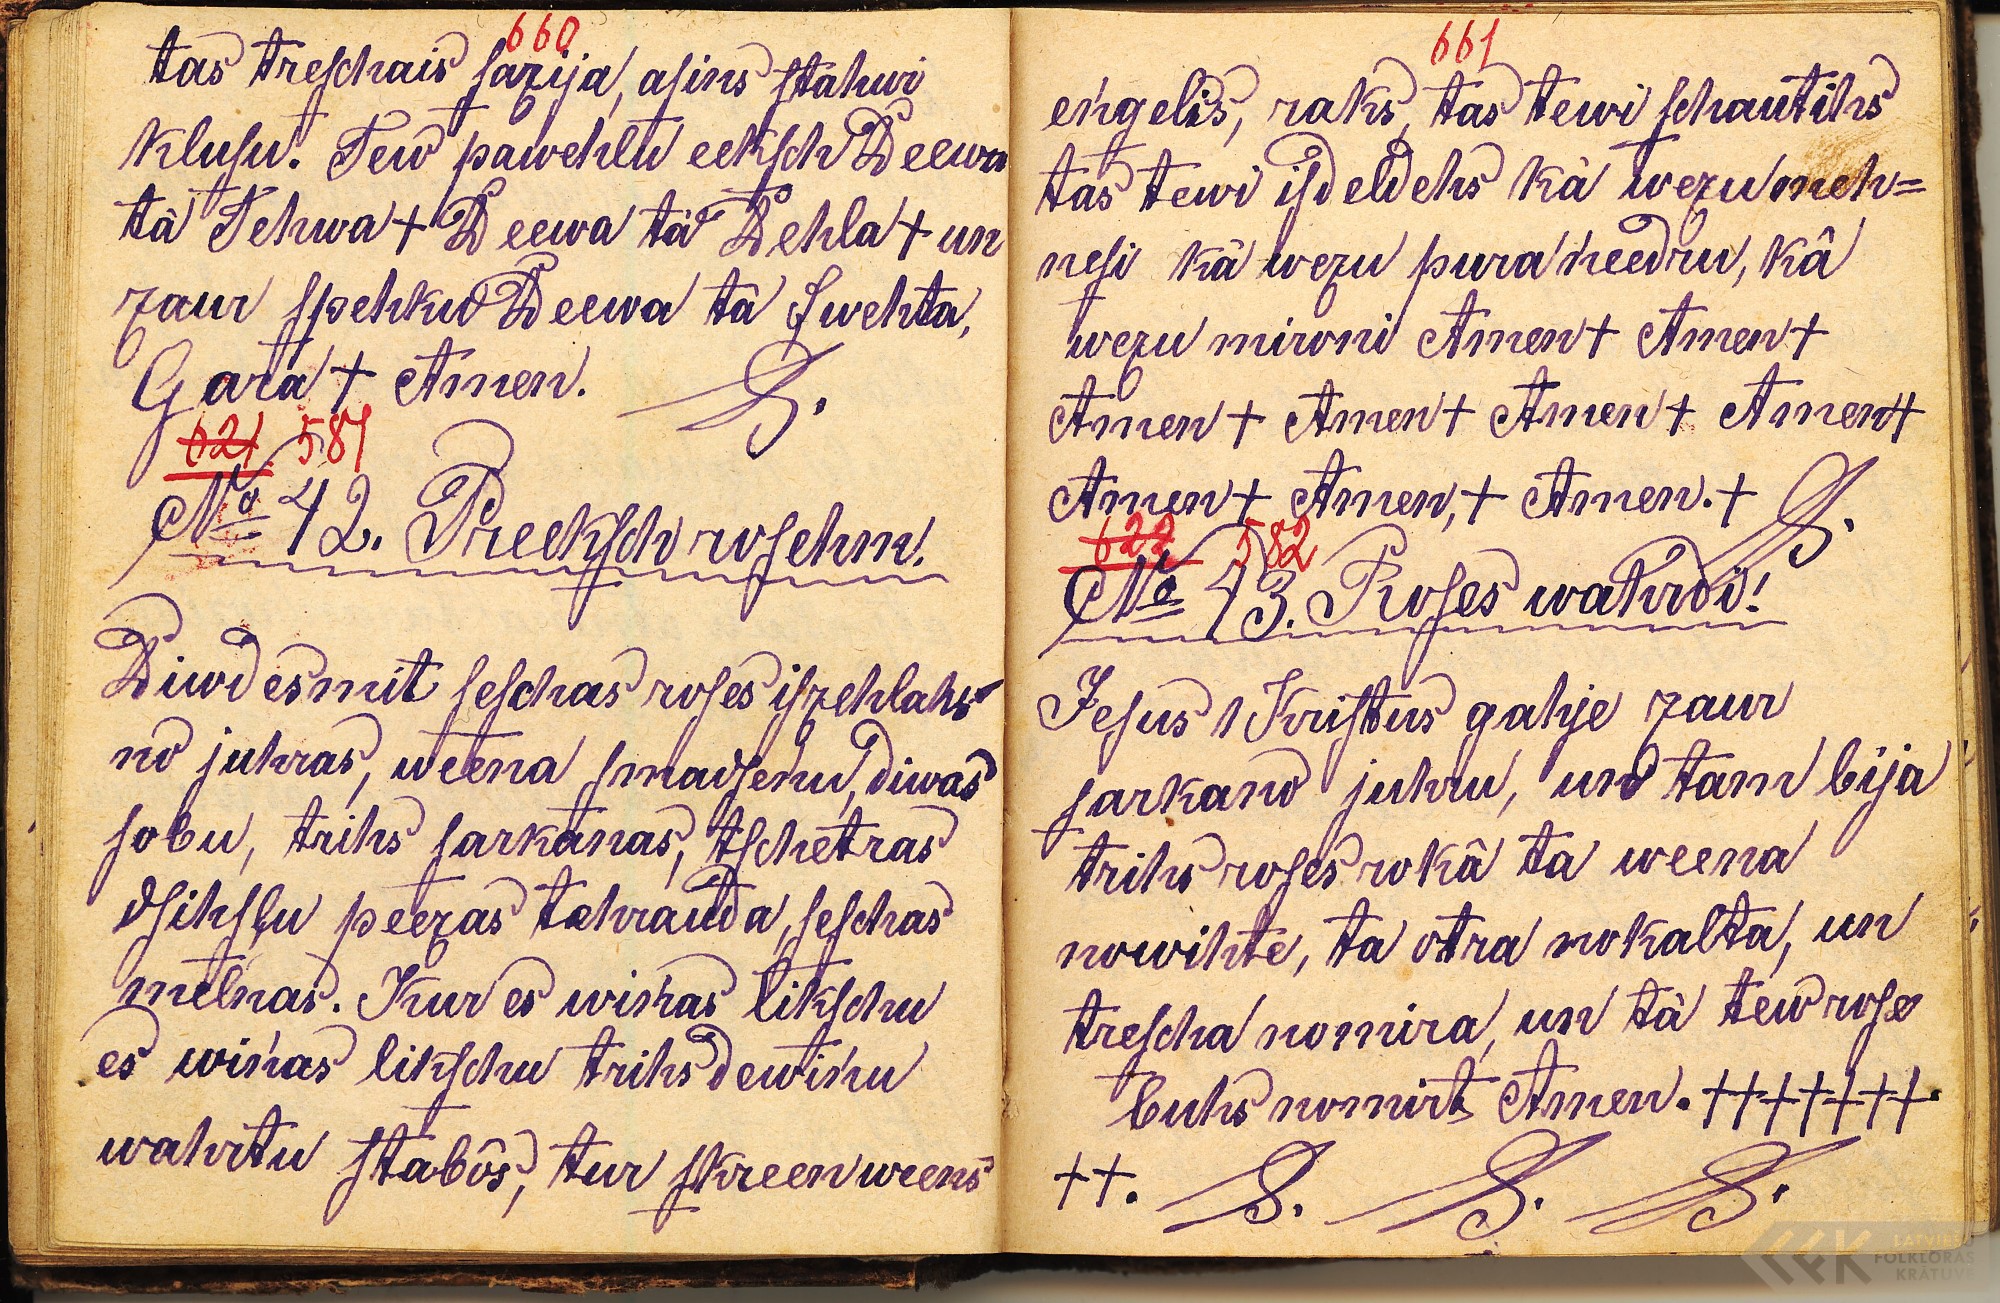 660
tas treschais sazija, asins stahwi
klusu. Tew pawehlu eeksch Deewa
tà Tehwa + Deewa tà Dehla + un
zaur spehku Deewa tà Swehta,
Gara + Amen. S.
621 581
№ 42. Preeksch rosehm.
Diwdesmit seschas roses iszehlahs
no juhras, weena smadseņu, diwas
sobu, trihs sarkanas, tschetras
dsihslu peezas tehrauda, seschas
melnas. Kur es wiņas likschu
es wiņas likschu trihsdewiņu
wahrtu stabôs, tur skreen weens
661
eņgelis, raks, tas tewi schautihs
tas tewi isdeldehs kà wezu meh=
nesi kà wezu pura needru, kâ
wezu mironi Amen + Amen +
Amen + Amen + Amen + Amen +
Amen + Amen, + Amen. + S.
622 582
№ 43. Roses wahrdi!
Jesus Kristus gahje zaur
sarkano juhru, un tam bija
trihs roses rokâ ta weena
nowihte, ta otra nokalta, un
trescha nomira, un tà tew rose
buhs nomirt Amen. + + + + + + +
+ +. S. S. S.
LATVIEŠU
FOLKLORAS
KRĀTUVE